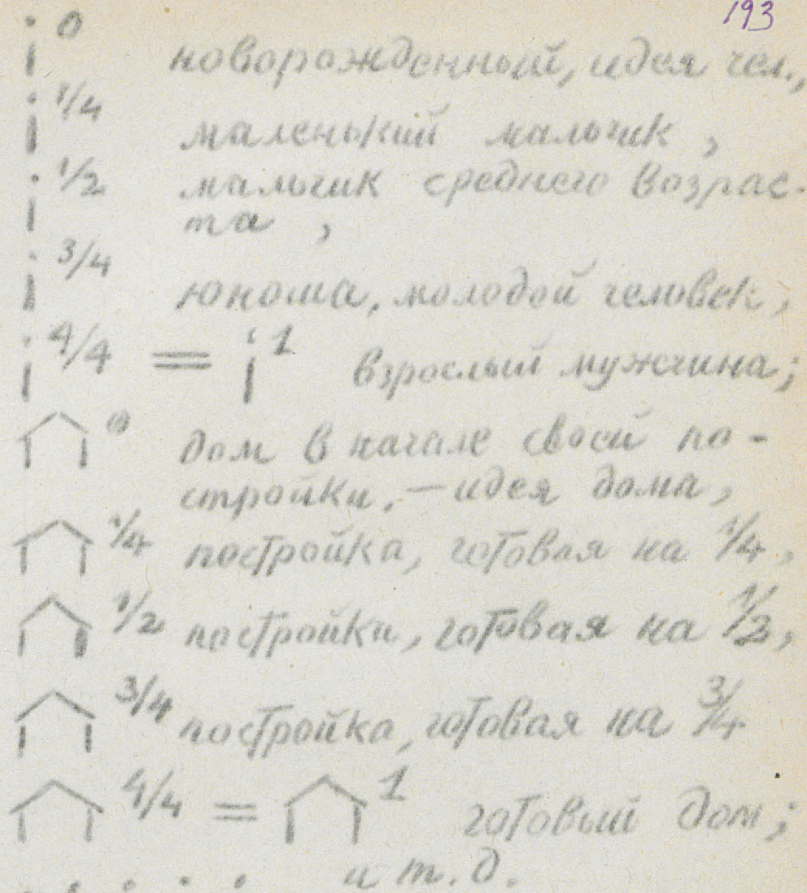 193
i⁰ новорожденный, идея чел.,
i¹/⁴ маленький мальчик,
i¹/² мальчик среднего возрас-
та,
i³/⁴ юноша, молодой человек,
i⁴/⁴ = i¹ взрослый мужчина;
⁰ дом в начале своей по-
стройки. — идея дома,
1/4 постройка, готовая на 1/4,
1/2 постройка, готовая на 1/2,
3/4 постройка, готовая на 3/4
4/4 = 1 готовый дом;
. . . . . и т.д.